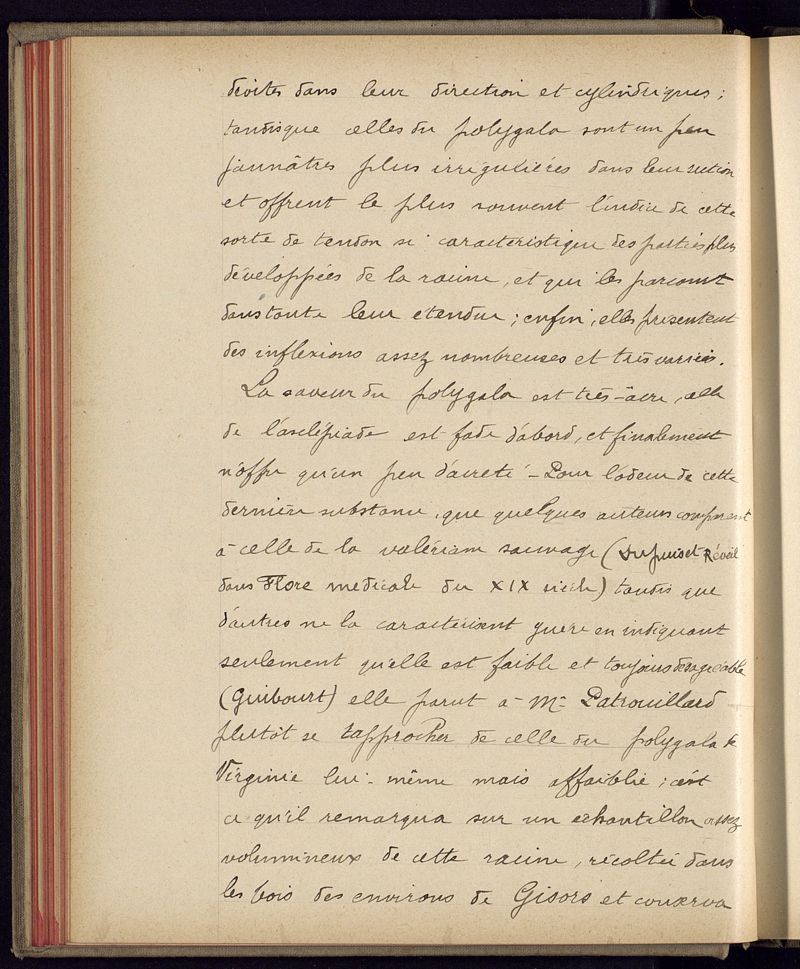 droites dans leur direction et cylindriques ;
tandisque celles du polygala sont un peu
jaunâtres plus irrégulières dans leur section
et offrent le plus souvent l'indice de cette
sorte de tendon si caractéristique des parties plus
développées de la racine, et qui les parcourt
dans toute leur étendue ; enfin, elles présentent
des inflexions assez nombreuses et très variées.
La saveur du polygala est très-âcre, celle
de l'asclépiade est fade d'abord, et finalement
n'offre qu'un peu d'âcreté - Pour l'odeur de cette
dernière substance, que quelques auteurs comparent
à celle de la valériane sauvage (Dupuis et Réveil
dans Flore médicale du XIX siècle) tandis que
d'autres ne la caractérisent guère en indiquant
seulement qu'elle est faible et toujours désagréable
(Guibourt) elle parut à Mr Patrouillard
plutôt se rapprocher de celle du polygala de
Virginie lui-même mais affaiblie ; c'est
ce qu'il remarqua sur un échantillon assez
volumineux de cette racine, récoltée dans
les bois des environs de Gisors et conserva